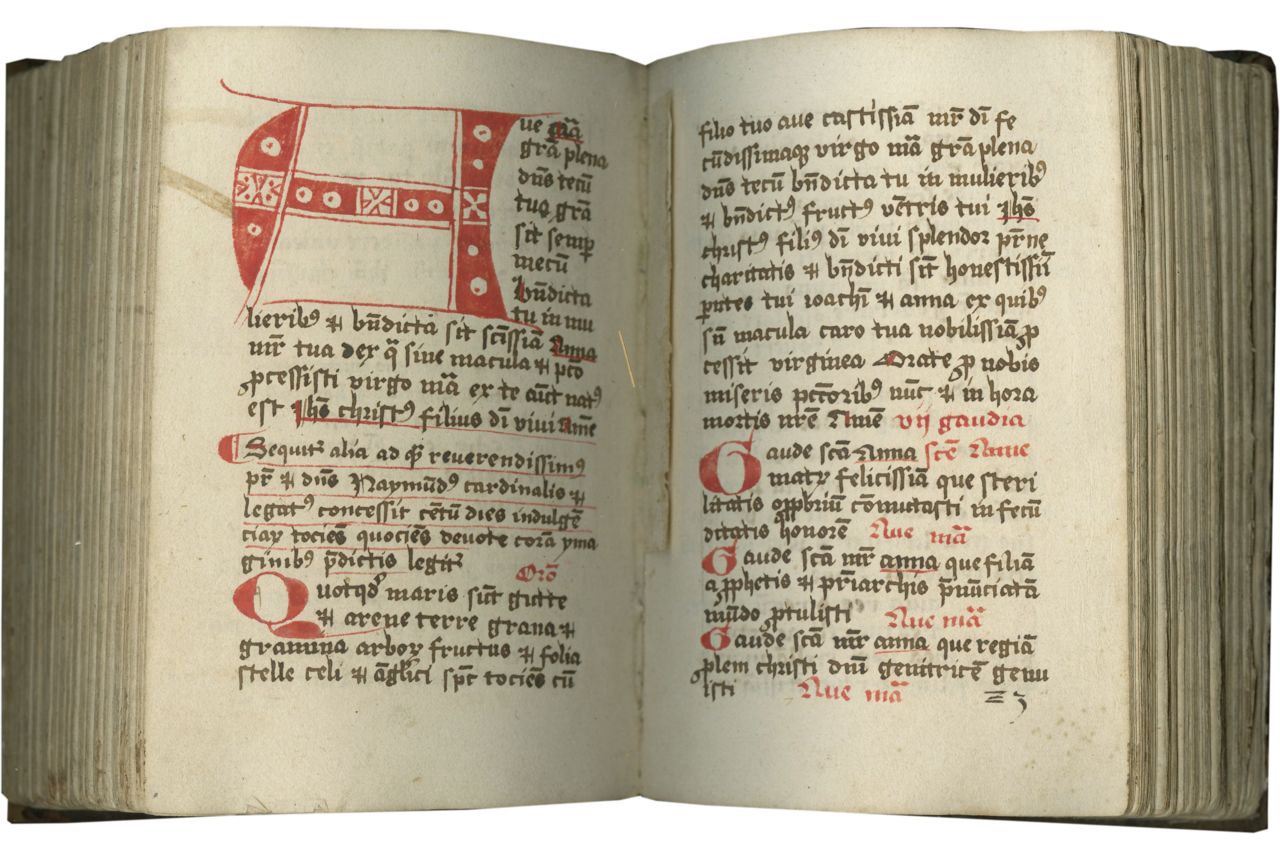 Aue mīa
grā plena
dn̄s tecū
tua grā
sit semꝑ
mecū
bn̄dicta
tu in mu
lierib9 ⁊ bn̄dicta sit sc̄issīa Anna
mr̄ tua de qͣ sine macula ⁊ pctō
ꝓcessisti virgo mīa ex te aūt nat9
est Ihs̄ christ9 filius dī viui Amē
Sequit͛ alia ad qͣ reuerendissim9
pr̄ ⁊ dn̄s Raymūd9 cardinalis ⁊
legat9 concessit cētū dies indulgē
ciaꝝ tociēs quociēs deuote corā yma
ginib9 p̄dictis legit͛
Orō
Quotqd͛ maris sūt gutte
⁊ arene terre grana ⁊
gramina arboꝝ fructus ⁊ folia
stelle celi ⁊ āglici spc̄ tociēs cū
filio tuo aue castissīa mr̄ dī fe
cūdissimaqꝫ virgo mīa grā plena
dn̄s tecū bn̄dicta tu in mulierib9
⁊ bn̄dict9 fruct9 vētris tui Ihs̄
christ9 fili9 dī viui splendor pr̄ne
charitatis ⁊ bn̄dicti sīt honestissīī
parētes tui ioachī ⁊ anna ex quib9
sn̄ macula caro tua nobilissīa ꝓ
cessit virginea Orate ꝓ nobis
miseris pctōrib9 nūc ⁊ in hora
mortis nr̄e Amē vij gaudia
Gaude scā Anna scē Anne
matꝝ felicissīa que steri
litatis oppbriū cōmutasti in fecū
ditatis honorē Aue mīa
Gaude scā mr̄ anna que filiā
a ꝓphetis ⁊ pr̄iarchis p̄nūciatā
mūdo ꝓtulisti Aue mīa
Gaude scā mr̄ anna que regiā
ꝓlem christi dn̄i genitricē genu
isti Aue mīa